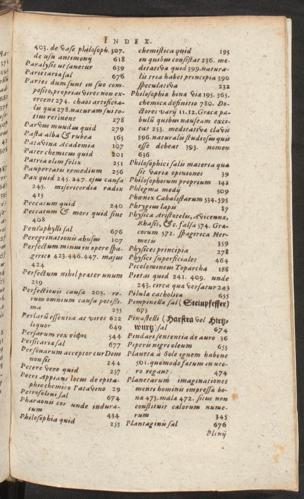 INDEX.
403. de vase philosoph. 507.
de usu antimonij 618
Paralysis ut sanetur 639
Parietaria sal 676
Partes dum sunt in suo com-
posito, propriæ vires non ex-
ercent 274.
lis qua 278. naturam sui to-
tius retinent 278
Parvus mundus quid 279
Pasta alba & rubea 165
Patavina Academia 107
Pater chemicus quid 201
Patrea olem filix 251
Pauperum remedium 256
Pax quid 245. 247. ejus causa
245. misericordia radix
411
Peccatum quid 240
Peccatum & mors quid sine
408
Pentaphylli sal 676
Peregrinationis abusus 107
Perfectum minus in opere
gerico 423. 446. 447. majus
424
Perfectum nihil præter unum
239
Perfectionis causa 203. re-
rum omnium causa
ma 235
Perlarū essentia ac vires 622
liquor 649
Persarum rex 544
Persicaria sal 677
Personarum acceptor cur Deus
244
Petere vero quid 237
Petro Appiano locus de opera-
phiechemica 29
Petroselini sal 674
Pharaonis cor unde indura-
tum 434
Philosophia quid 235
chemistica quid 195
en quibus consistat 236. me-
dicastra quid 399. natura-
lis tres habet principia 390
speculativa 232
Philosophia bona via 195. 365.
chemica definitio 780. Do-
ctores varij 11. 12. Græca pa-
buli quibus nauseam exci-
tat 233. meditastra clavis
396. naturalis studiosum quis
esse debeat 393. nomen
636
Philosophici salis materia qua
sit varia opiniones 39
Philosophorum proprium 142
Phlegma medij 509
Phœnix Cabalistarum 534. 595
Phrygium lapis 17
Physica Aristotelis, Avicennæ,
Rhasis, &c. falsa 574. Gra-
corum 572. spagirica Her-
metis 359
Physices principia 278
Physica superficiales 464
Picolomeneum Toparcha 188
Pietas quid 241. 409. unde
243. circa qua versatur 243
Pilula catholica 655
Pimpinella sal (Steinpfeffer)
673
Pinastelli (Harstra vel Hirsch-
wurtz) sal 674
Pindari sententia de auro 36
Piperis nigri oleum 655
Planta à Sole ignem habent
501. quomodo futurum an ve-
ro regant 474
Plantarum imaginationes
mentis hominis impressa bo-
na 473. mala 472. situs non
constituit calorum nume-
rum 345
Plantaginis sal 676
Plinij